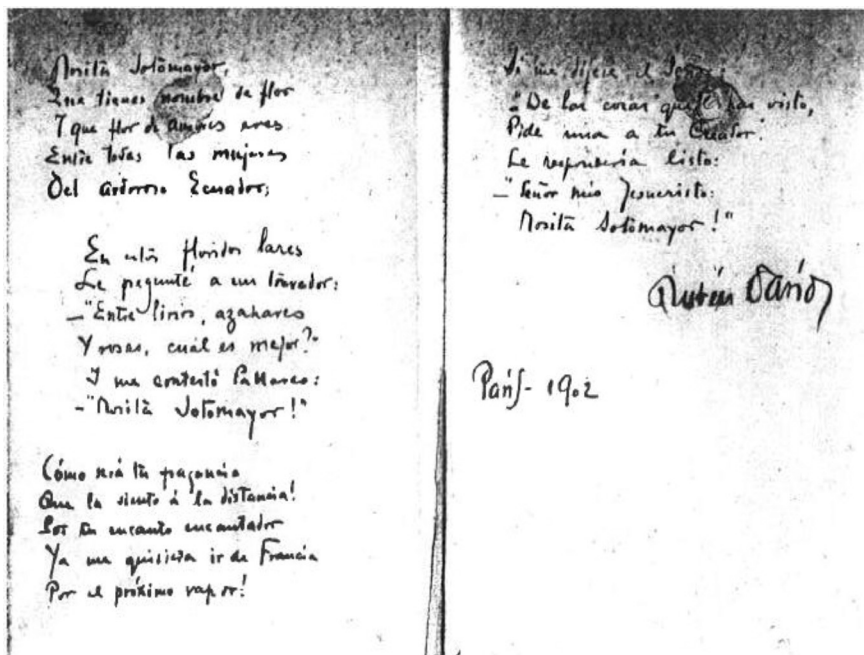 Rosita Sotomayor,
Que tienes nombre de flor
Y que flor de amores eres
Entre todas las mujeres
Del ardoroso Ecuador;
En estos floridos lares
Le pegunté a un trovador:
—"Entre lirios, azahares
Y rosas, cuál es mejor?"
Y me contestó Pallares:
—"Rosita Sotomayor!"
Cómo será tu fragancia
Que la siento á la distancia!
Por tu encanto encantador
Ya me quisiera ir de Francia
Por el próximo vapor!
Si me dijese el Señor:
—"De las cosas que has visto,
Pide una a tu Creador."
Le respondería listo:
—"Señor mío Jesucristo:
Rosita Sotomayor!"
Rubén Darío
París - 1902